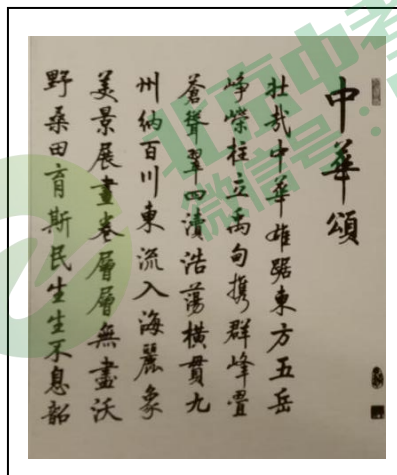 中華頌
壯哉中華雄踞東方五岳
崢嶸柱立禹甸携群峰疊
蒼聳翠四瀆浩蕩橫貫九
州納百川東流入海麗象
美景展畫卷層層無盡沃
野桑田育斯民生生不息韶
北京中考
微信号：